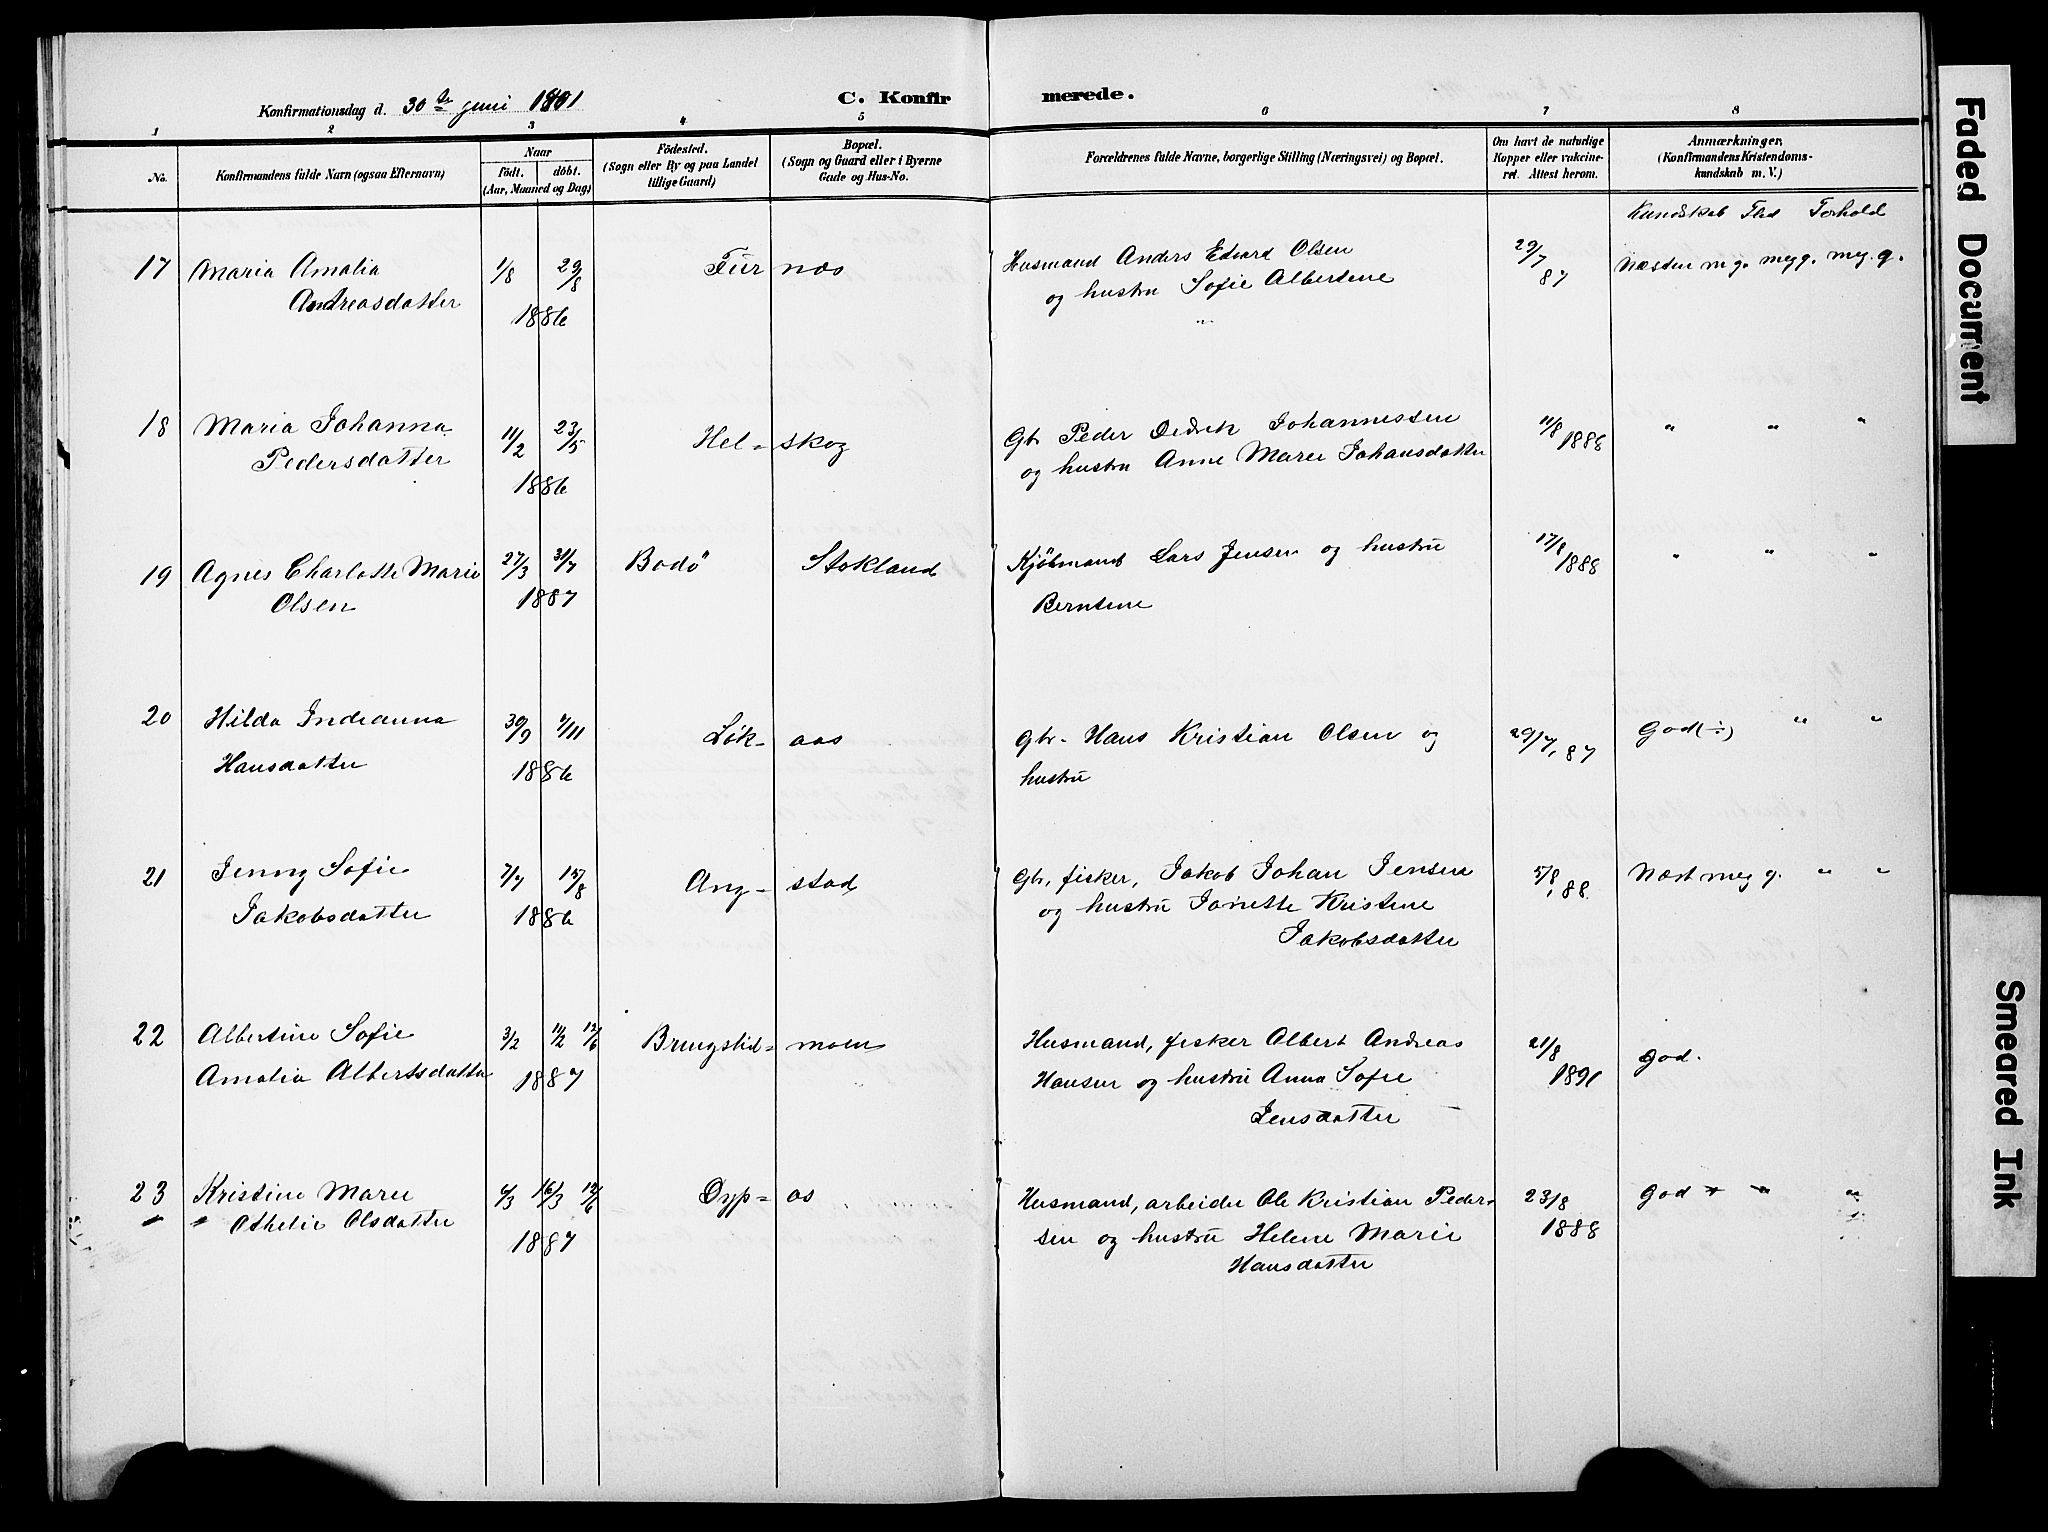 Konfirmationsdag d. 30te juni 1901
C. Konfirmerede.
1 2 3 4 5 6 7 8
No.
Konfirmandens fulde Navn (ogsaa Efternavn)
Naar
födt. döbt.
(Aar, Maaned og Dag)
Födested.
(Sogn eller By og paa Landet
tillige Gaard)
Bopæl.
(Sogn og Gaard eller i Byerne
Gade og Hus-No.
Forældrenes fulde Navne, borgerlige Stilling (Næringsvei) og Bopæl.
Om havt de naturlige
Kopper eller vakcine-
ret. Attest herom.
Anmærkninger,
(Konfirmandens Kristendoms-
kundskab m. V.)
Kundskab Flid Forhold
17 Maria Amalia 1/8 29/8 Furnæs Husmand Anders Edvard Olsen 29/7 Næsten m g. meg g. meg. g.
Andreasdatter og hustru Sofie Albertene 87
1886
18 Maria Johanna 11/2 23/5 Hel-skog Gbr Peder Dedrek Johannessen 11/8 " " "
Pedersdatter og hustru Anne Marie Johansdatter 1888
1886
19 Agnes Charlotte Marie 27/3 31/7 Bodö Stokland Kjöbmand Lars Jensen og hustru 17/8 " " "
Olsen 1887 Berntine 1888
20 Hilda Indianna 30/9 7/11 Løk-aas Gbr. Hans Kristian Olsen og 29/7, 87 God (÷) " "
Hansdatter 1886 hustru
21 Jenny Sofie 7/7 15/8 Ang-stad Gbr, fisker, Jakob Johan Jensen 5/8, 88 Næst meg g. " "
Jakobsdatter 1886 og hustru Janette Kristine
Jakobsdatter
22 Albertine Sofie 3/2 11/2 12/6 Bringslid-moen Husmand, fisker Albert Andreas 21/8 God.
Amalia Albertsdatter 1887 Hansen og hustru Anna Sofie 1891
Jensdatter
23 Kristine Marie 6/3 16/3 12/6 Dyp-os Husmand, arbeider Ole Kristian Peder- 23/8 God " "
Othelie Olsdatter 1887 sen og hustru Helene Marie 1888
Hansdatter
Faded Document
Smeared Ink